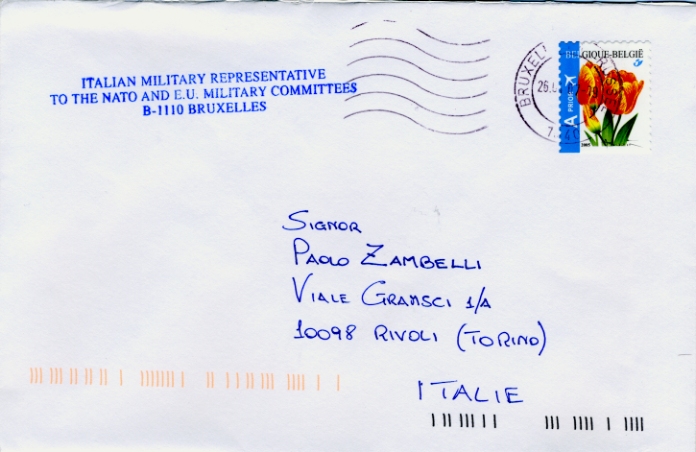 ITALIAN MILITARY REPRESENTATIVE
TO THE NATO AND E.U. MILITARY COMMITTEES
B-1110 BRUXELLES
BELGIQUE-BELGIË
A PRIOR
Signor
Paolo Zambelli
Viale Gramsci 1/A
10098 Rivoli (Torino)
Italie